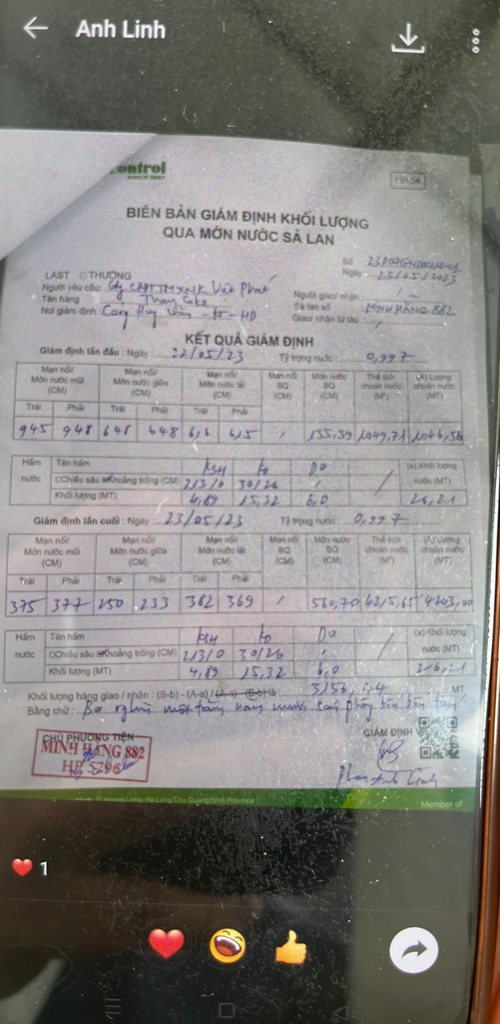 Anh Linh
ontrol
SINCE 2007
HPI.04
BIÊN BẢN GIÁM ĐỊNH KHỐI LƯỢNG
QUA MỚN NƯỚC SÀ LAN
Số
Ngày 23/05/2023
LAST THƯỜNG
Người yêu cầu: Cty CPTMXNK Việt Phát Người giao/ nhận
Tên hàng Than Coke Sà lan số MINH HẰNG 882
Nơi giám định: Cảng Huy Văn - - HD Giao/ nhận từ tàu
KẾT QUẢ GIÁM ĐỊNH
Giám định lần đầu : Ngày 22/05/23 Tỷ trọng nước : 0,997
Mạn nổi/ Mạn nổi/ Mạn nổi/ Mạn nổi Mớn nước Thể tích (A) Lượng
Mớn nước mũi Mớn nước giữa Mớn nước lái BQ BQ choán nước choán nước
(CM) (CM) (CM) (CM) (CM) (M³) (MT)
Trái Phải Trái Phải Trái Phải
945 948 648 648 616 615 155,39 1049,71 1046,56
Hầm Tên hầm KSH Do (a) Khối lượng
nước Chiều sâu Khoảng trống (CM) 213/0 30/26 nước (MT)
Khối lượng (MT) 4,89 15,32 6,0 26,21
Giám định lần cuối : Ngày 23/05/23 Tỷ trọng nước : 0,997
Mạn nổi/ Mạn nổi/ Mạn nổi/ Mạn nổi Mớn nước Thể tích (A) Lượng
Mớn nước mũi Mớn nước giữa Mớn nước lái BQ BQ choán nước choán nước
(CM) (CM) (CM) (CM) (CM) (M³) (MT)
Trái Phải Trái Phải Trái Phải
375 377 250 233 382 369 560,70 4215,65 4203,00
Hầm Tên hầm KSH Do (a) Khối lượng
nước Chiều sâu Khoảng trống (CM) 213/0 30/26 nước (MT)
Khối lượng (MT) 4,89 15,32 6,0 26,21
Khối lượng hàng giao / nhận : (B-b) - (A-a) / (A-a) - (B-b) là 3156,44 MT
Bằng chữ : Ba nghìn một trăm năm mươi sáu phẩy bốn bốn tấn
CHỦ PHƯƠNG TIỆN GIÁM ĐỊNH V
MINH HẰNG 882
HP 5796
Phan Anh Linh
Ha Long City Quang Ninh Province Member of
1